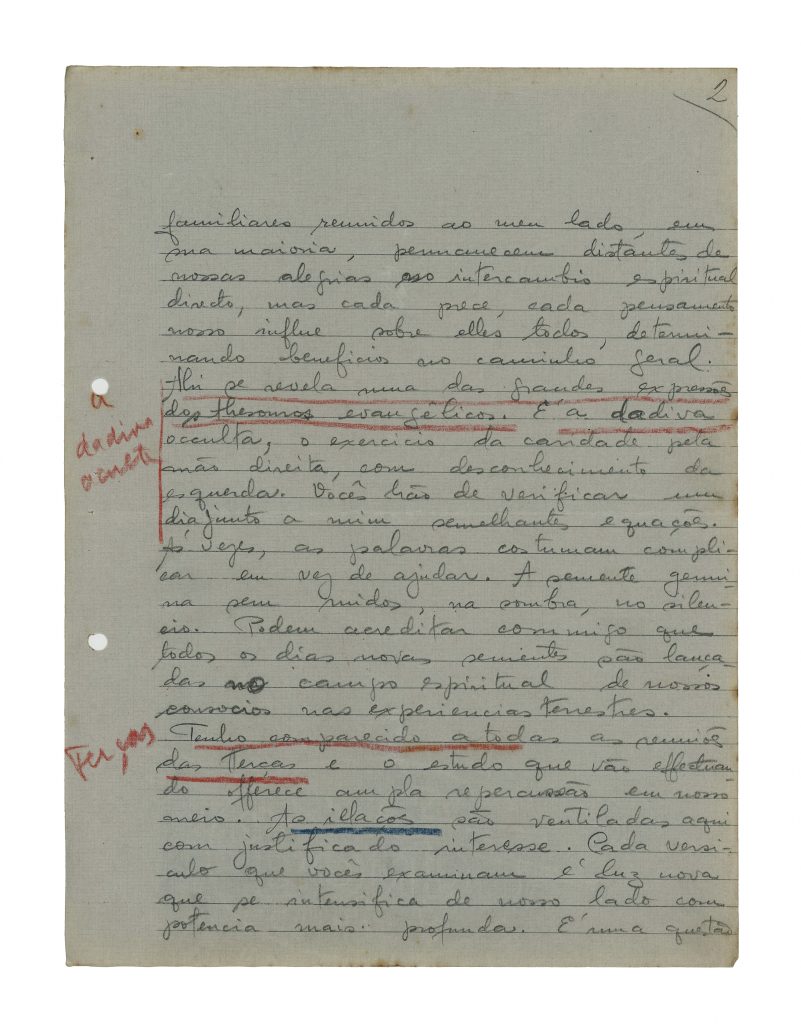 2
familiares reunidos ao meu lado, em
sua maioria, permanecem distantes de
nossas alegrias no intercambio espiritual
directo, mas cada prece, cada pensamento
nosso influe sobre elles todos, determi-
nando beneficios no caminho geral.
Ahi se revela uma das grandes expressões
dos thesouros evangêlicos. É a dadiva
occulta, o exercicio da caridade pela
mão direita, com desconhecimento da
esquerda. Vocês hão de verificar um
dia junto a mim semelhantes equações.
Ás vezes, as palavras costumam compli-
car em vez de ajudar. A semente germi-
na sem ruidos, na sombra, no silen-
cio. Podem acreditar commigo que
todos os dias novas sementes são lança-
das no campo espiritual de nossos
consocios nas experiencias terrestres.
Tenho comparecido a todas as reuniões
das Terças e o estudo que vão effectuan-
do offerece ampla repercussão em nosso
meio. As illações são ventiladas aqui
com justificado interesse. Cada versi-
culo que vocês examinam é luz nova
que se intensifica de nosso lado com
potencia mais profunda. É uma questão
a
dadiva
oculta
Terças